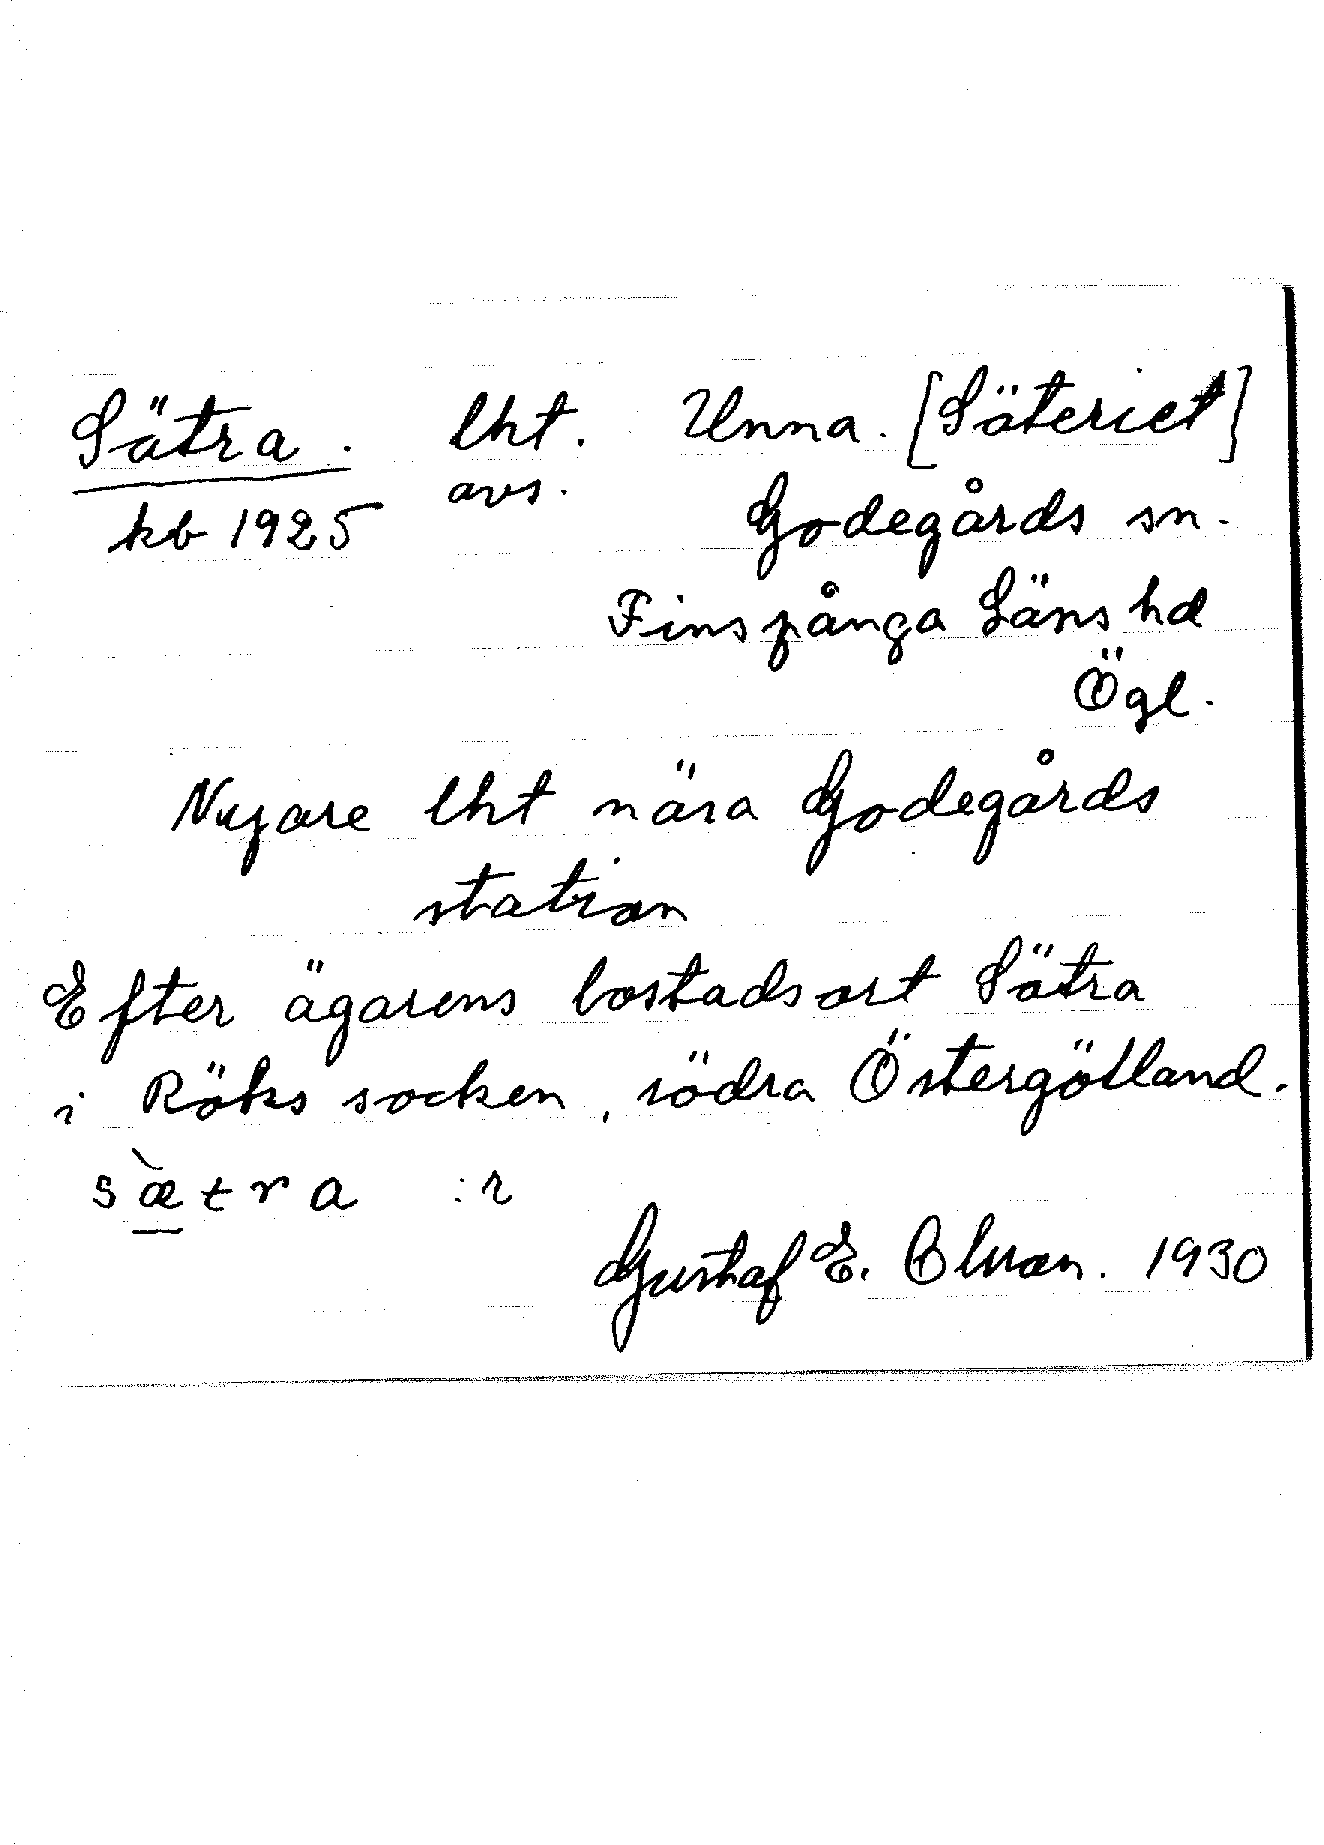 Sätra. lht. Unna. [Säteriet]
kb 1925 avs. Godegårds sn.
Finspånga Läns hd
Ögl.
Nyare lht nära Godegårds
station
Efter ägarens bostadsort Sätra
i Röks socken, södra Östergötland.
s æ̀ t r a :r
Gustaf E. Olsson. 1930